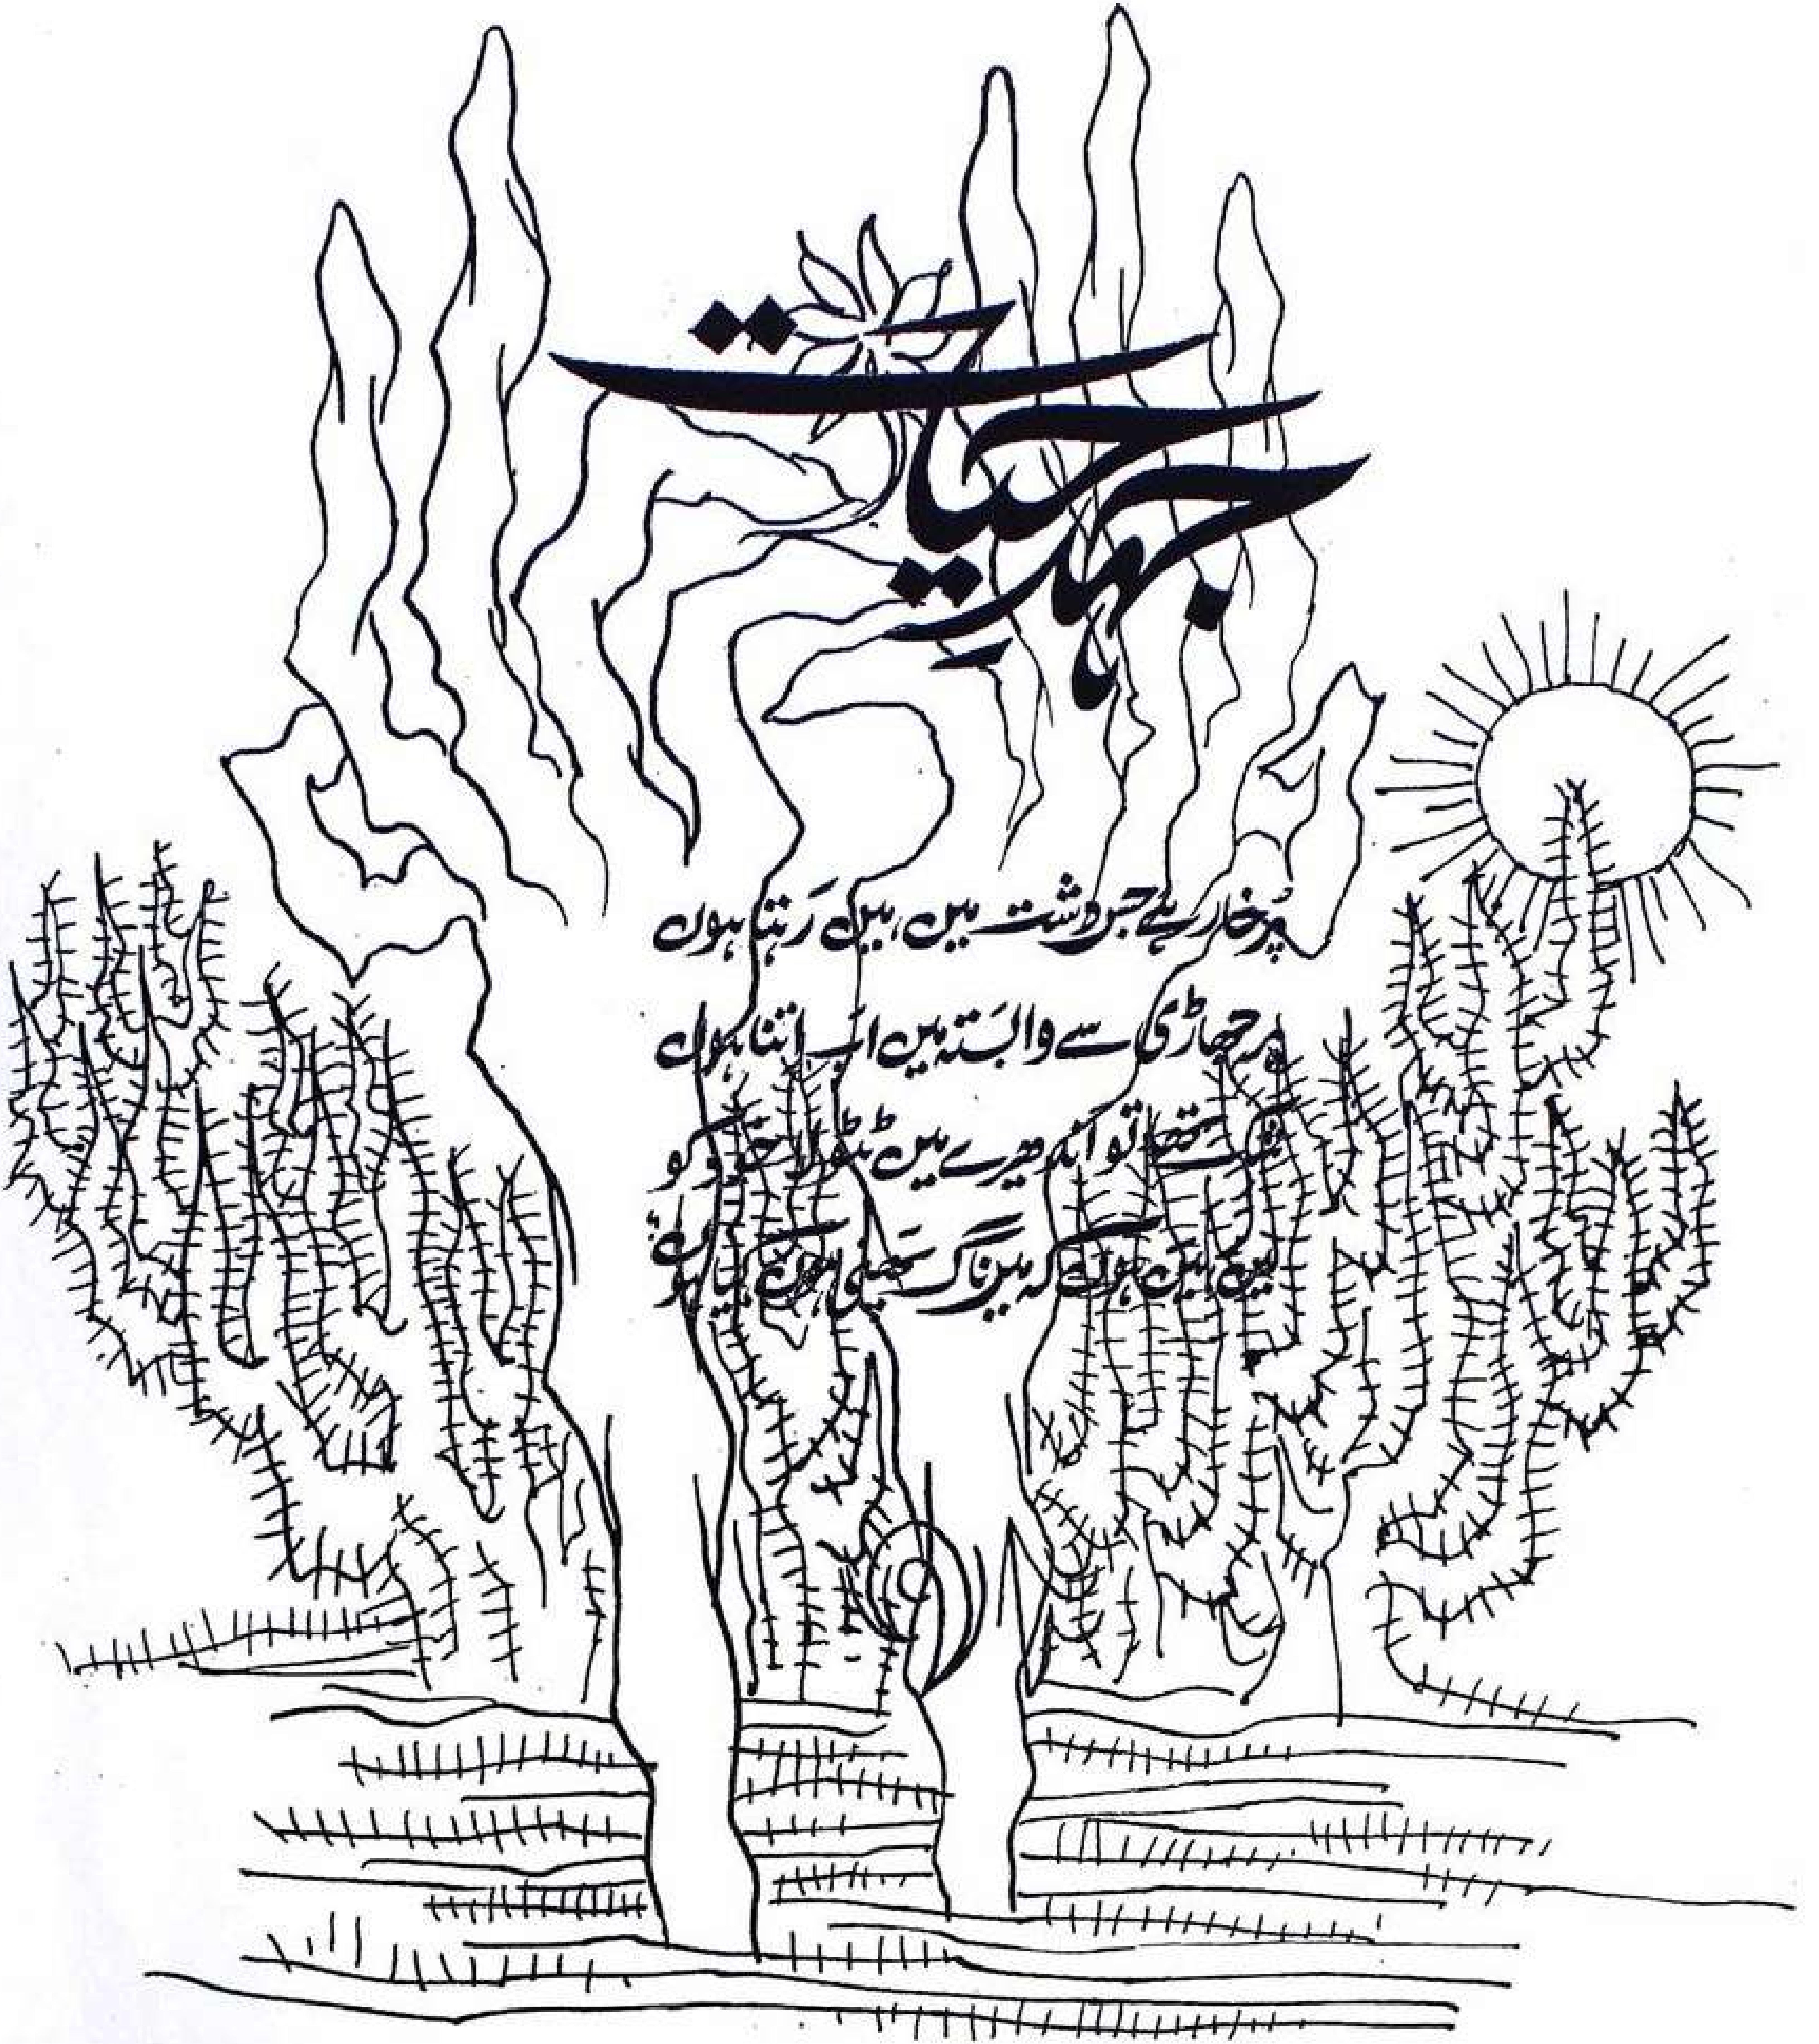 جہدِ حیات
پُرخار رہے جس دشت میں، میں رہتا ہوں
ہر جھاڑی سے وابستہ میں اب اتنا ہوں
شک تھا تو اندھیرے میں ٹٹولا خود کو
میں، میں ہوں کہ میں ناگ پھنی ہوں کیا ہوں